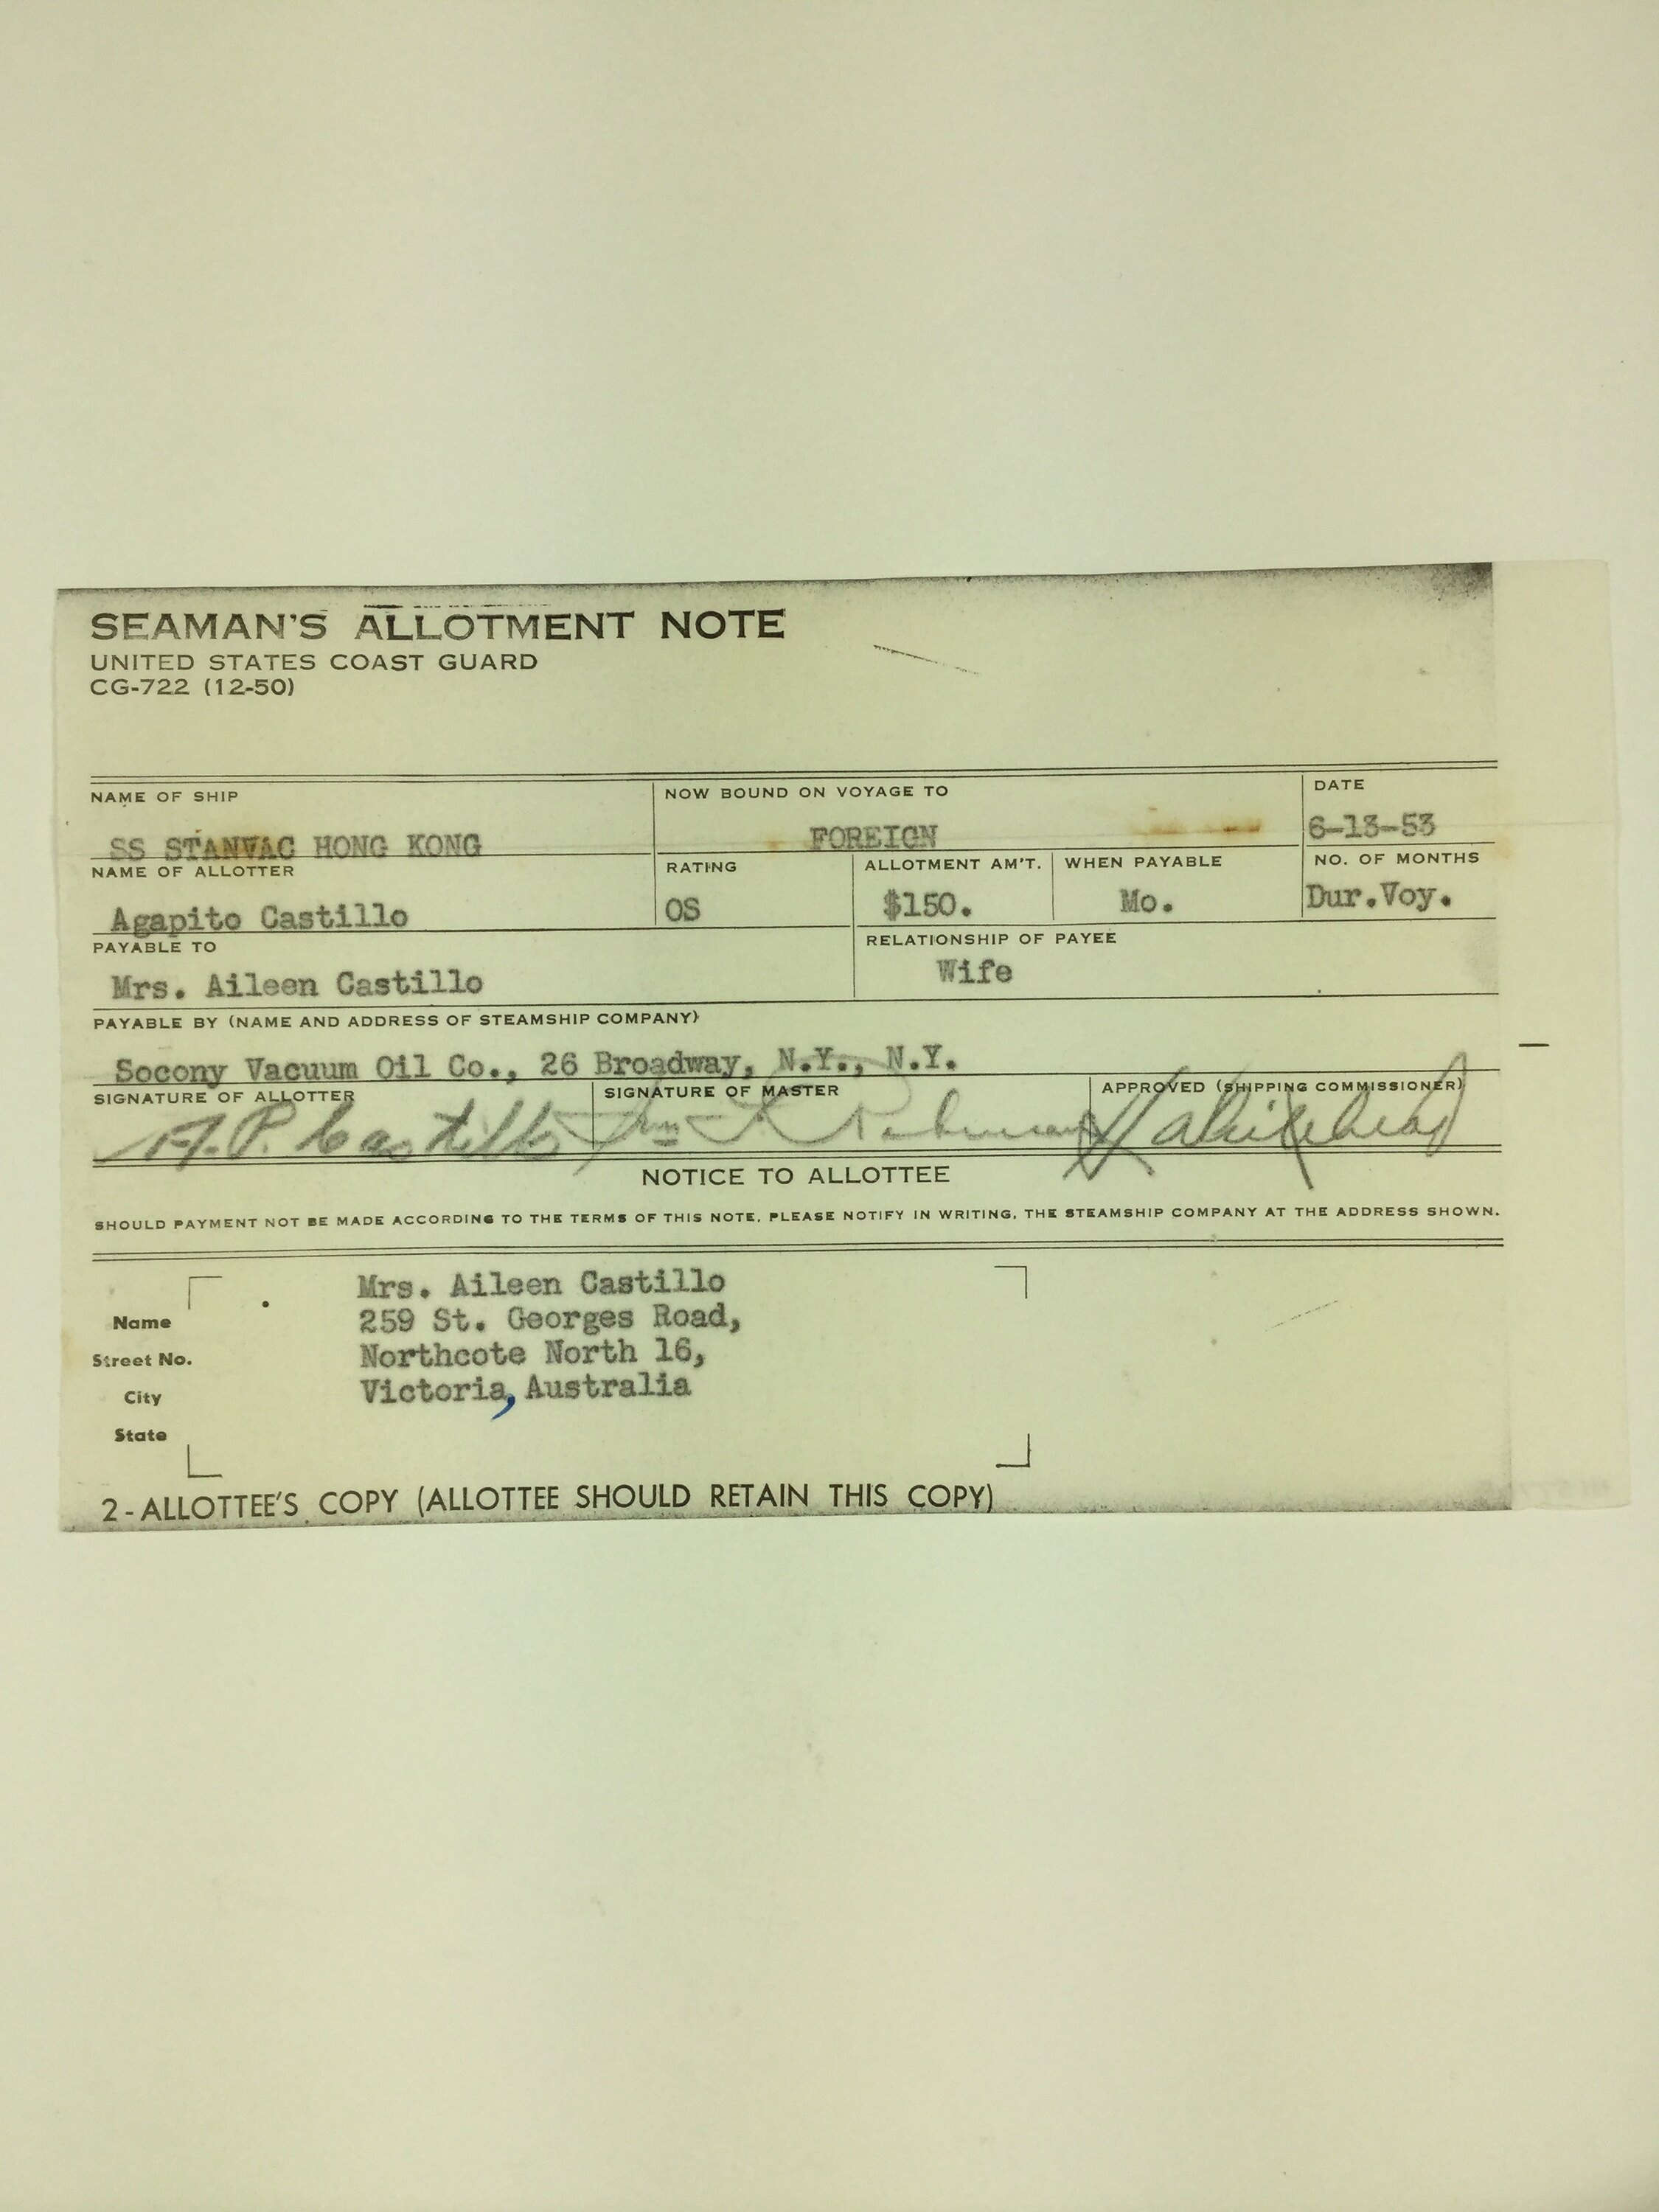 SEAMAN'S ALLOTMENT NOTE
UNITED STATES COAST GUARD
CG-722 (12-50)
NAME OF SHIP
SS STANVAC HONG KONG
NOW BOUND ON VOYAGE TO
FOREIGN
DATE
6-13-53
NAME OF ALLOTTER
Agapito Castillo
RATING
OS
ALLOTMENT AM'T.
$150.
WHEN PAYABLE
Mo.
NO. OF MONTHS
Dur.Voy.
PAYABLE TO
Mrs. Aileen Castillo
RELATIONSHIP OF PAYEE
Wife
PAYABLE BY (NAME AND ADDRESS OF STEAMSHIP COMPANY)
Socony Vacuum Oil Co., 26 Broadway, N.Y., N.Y.
SIGNATURE OF ALLOTTER
A.P. Castillo
SIGNATURE OF MASTER
APPROVED (SHIPPING COMMISSIONER)
NOTICE TO ALLOTTEE
SHOULD PAYMENT NOT BE MADE ACCORDING TO THE TERMS OF THIS NOTE, PLEASE NOTIFY IN WRITING, THE STEAMSHIP COMPANY AT THE ADDRESS SHOWN.
Name
Street No.
City
State
Mrs. Aileen Castillo
259 St. Georges Road,
Northcote North 16,
Victoria, Australia
2-ALLOTTEE'S COPY (ALLOTTEE SHOULD RETAIN THIS COPY)